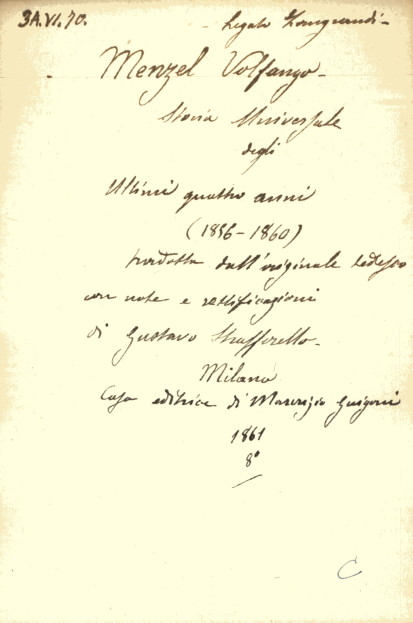 3A.VI.70.
Legato Zangrandi-
Menzel Volfango-
Storia Universale
degli
Ultimi quattro anni
(1856-1860)
tradotta dall'originale tedesco
con note e rettificazioni
di Gustavo Strafforello-
Milano
Casa editrice di Maurizio Guigoni
1861
8°
C